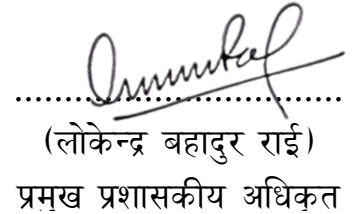 ................................
(लोकेन्द्र बहादुर राई)
प्रमुख प्रशासकीय अधिकृत